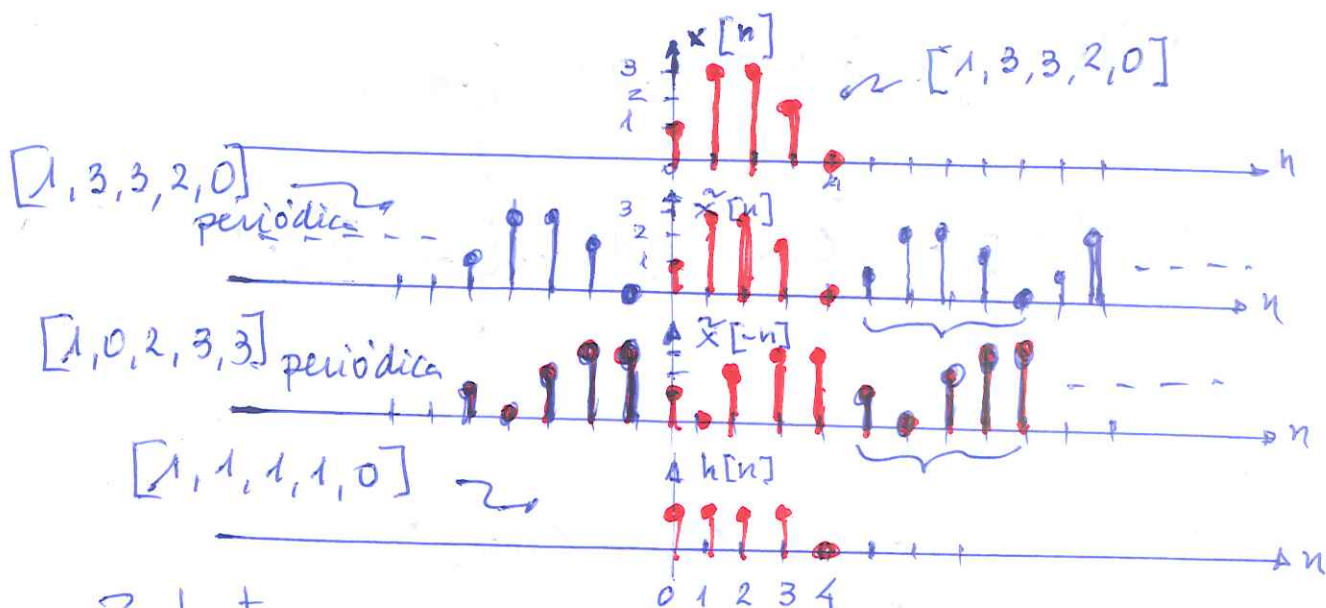 x[n]
3
2
1
[1, 3, 3, 2, 0]
0
4
n
[1, 3, 3, 2, 0]
periódica
3
2
1
x̃[n]
n
[1, 0, 2, 3, 3] periódica
x̃[-n]
n
[1, 1, 1, 1, 0]
h[n]
n
0 1 2 3 4